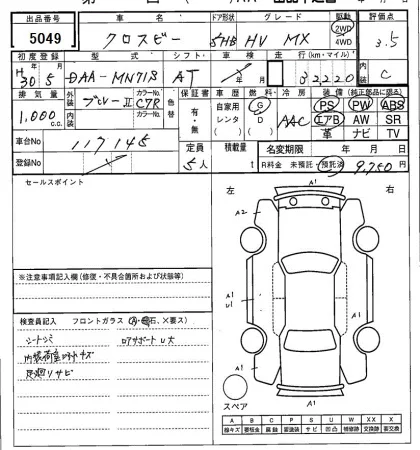 出品番号 車名 ドア形状 グレード 駆動 評価点
5049 クロスビー 5HB HV MX 2WD 4WD 3.5
初度登録 型式 シフト 車検 走行(km・マイル) 内装
H30年5月 DAA-MN71S AT 年 32,220 C
排気量 外装 カラーNo. 色替 保証書 車歴 燃料 冷房 装備(純正部品に限る)
1,000 c.c. 内装 ブルーII C7R 有・無 自家用 レンタ G D AAC PS PW ABS
カラーNo. エアB AW SR
革 ナビ TV
車台No 117145 定員 積載量 名変期限 年 月 日
登録No 5人 t R料金 未預託・預託済 9,750円
セールスポイント
左 右
A1
A2
A1
A1
U1
A1
A1
※注意事項記入欄(修復・不具合箇所および状態等)
検査員記入 フロントガラス(A・飛石、×要ス)
シートシミ ロアサポートU大
内装荷室マワリキズ
足廻りサビ
スペア
A B C P S U W XX X
線キズ 要板金 腐蝕 要塗装 サビ 凹凸 補修跡 交換跡 要交換